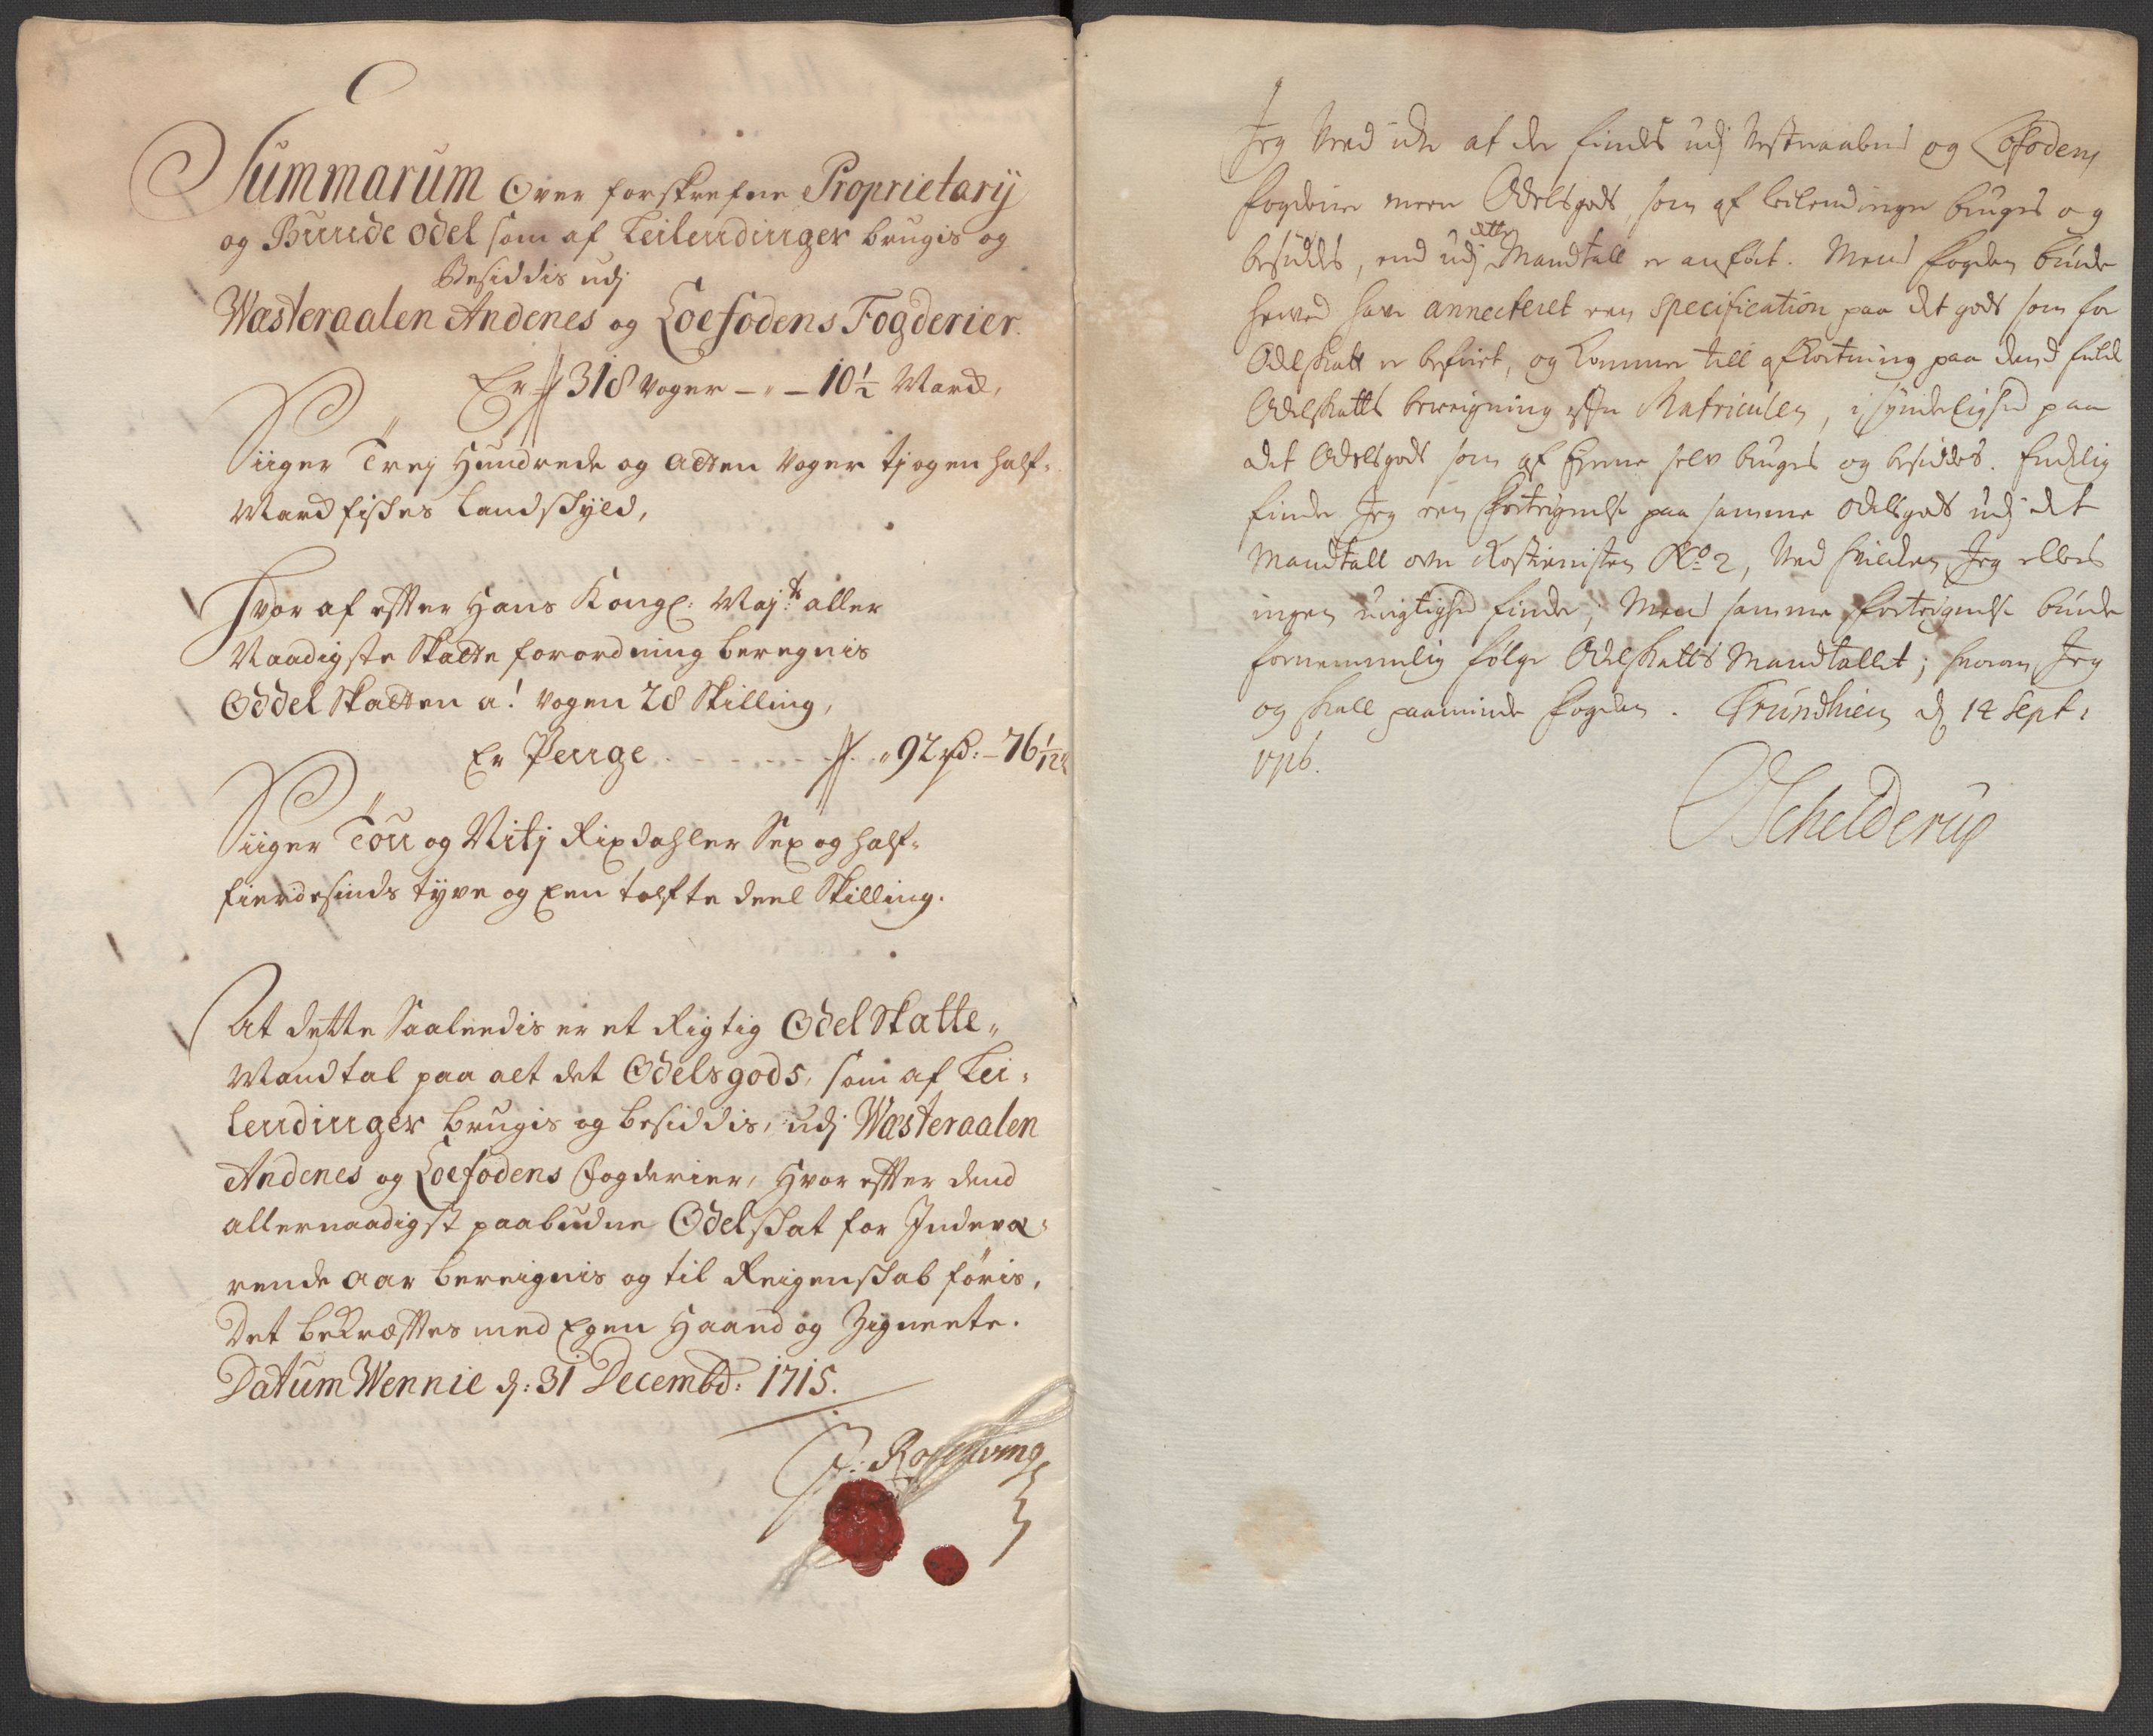 Summarum Over forskrefne Proprietarij
og Bunde Odel som af Leilendinger brugis og
Besiddis udj
Wæsteraalen Andenes og Loefodens Fogderier.
Er 318 Voger – „ – 10½ Mark,
Siiger Trej Hundrede og Atten Voger tj og en half-
Mark fiskes Landskyld,
Hvor af efter Hans Kongl: Maj:ts aller
Naadigste Skatte forordning beregnis
Oddel Skatten a! Vogen 28 Skilling,
Er Penge . . . . . . 92 rd: – 76 1/12 s
Siiger Tou og Nitj Rixdahler Sex og half-
fierdesinds tyve og Een tolfte deel Skilling.
At dette Saaledis er et Rigtig Odel Skatte-
Mandtal paa alt det Odelsgods, som af Lei-
lendinger brugis og besiddis, udj Wæsteraalen
Andenes og Loefodens Fogderier, Hvor efter dend
allernaadigst paabudne Odelskat for Indevæ-
rende Aar bereignis og til Reigenskab føris,
Det bekræftes med Egen Haand og Zignete.
Datum Wennie d: 31 Decembr: 1715.
Rosenving
Jeg Ved icke at der findes udj Vesteraalens og Lofodens
fogderie meere Odelsgods, som af leilendinger bruges og
besiddes, end udj dette Mandtall er anført. Mens fogden burde
herved have annecteret een specification paa det gods som for
Odelskatt er befriet, og kommer till afkortning paa dend fulde
Odelskatts bereigning efter Matriculen, i synderlighed paa
det Odelsgods som af Eierne selv bruges og besiddes. Endelig
finder Jeg een forteignelse paa samme odelsgods udj det
Mandtall over Rostienisten No 2, Ved hvilken Jeg ellers
ingen urigtighed finder; Mens samme fortegnelse burde
fornemmelig følge Odelskatts Mandtallet; hvorom Jeg
og skall paaminde fogden. Trundhiem d 14 Sept:
1716.
Schelderup